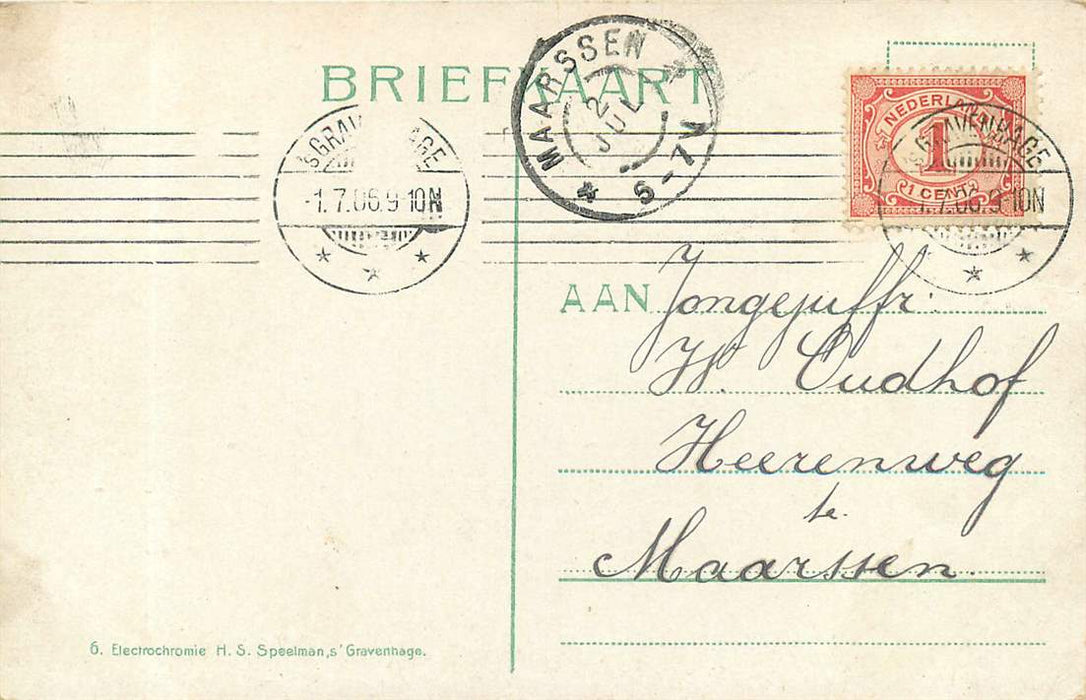 BRIEFKAART
MAARSSEN
2 JUL
6-7V
'SGRAVENHAGE
-1.7.06.9-10N
NEDERLAND
1
1 CENT
'SGRAVENHAGE
-1.7.06.9-10N
AAN Jongejuffr:
W. Oudhof
Heerenweg
te
Maarssen.
6. Electrochromie H. S. Speelman, s' Gravenhage.